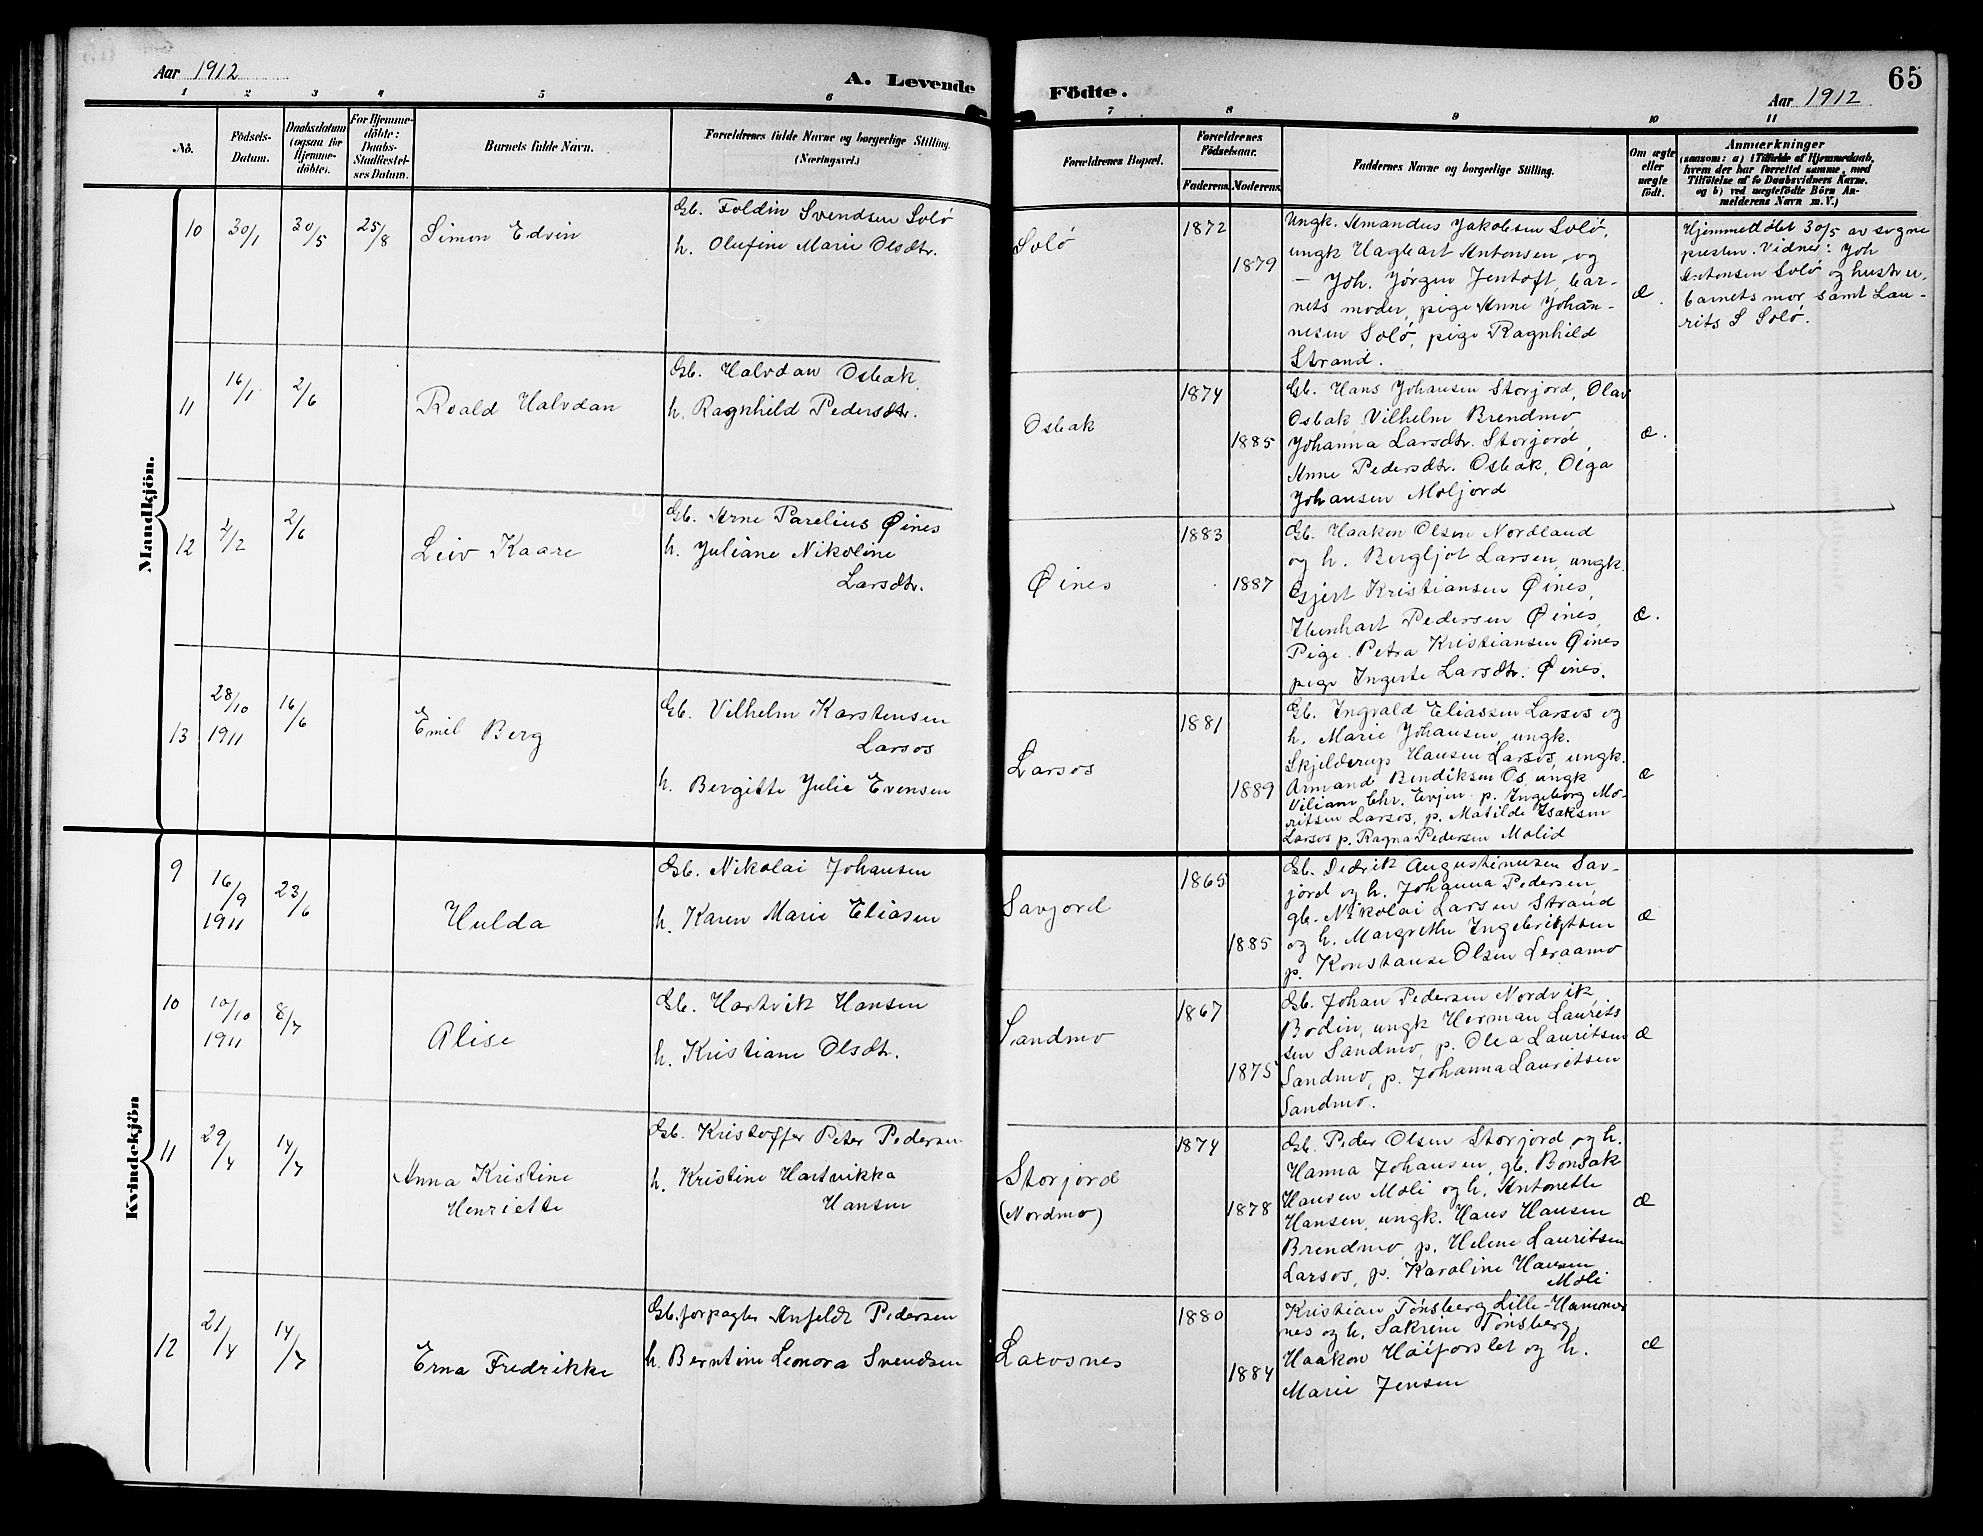 Aar 1912
A. Levende
Födte.
65
Aar 1912
1 2 3 4 5 6 7 8 9 10 11
No.
Födsels-
Datum.
Daabsdatum
(ogsaa for
Hjemme-
döbte).
For Hjemme-
döbte:
Daabs-
Stadfæstel-
ses Datum.
Barnets fulde Navn.
Forældrenes fulde Navne og borgerlige Stilling.
(Næringsvei.)
Forældrenes Bopæl.
Forældrenes
Födselsaar.
Faderens. Moderens.
Faddernes Navne og borgerlige Stilling.
Om ægte
eller
uægte
födt.
Anmærkninger
(saasom: a) i Tilfælde af Hjemmedaab,
hvem der har forrettet samme, med
Tilföielse af to Daabsvidners Navne,
og b) ved uægtefödte Börn An-
melderens Navn m. V.)
Mandkjön.
10
30/1
30/5
25/8
Simon Edvin
Gb. Foldin Svendsen Solö
h. Olufine Marie Olsdtr.
Solö
1872
1879
Ungk. Amandus Jakobsen Solö,
ungk Hagbart Antonsen, og
— Joh. Jørgen Jentoft, bar-
nets moder, pige Anne Johan-
nesen Solö, pige Ragnhild
Strand.
æ.
Hjemmedöbt 30/5 av sogne
presten. Vidner: Joh
Antonsen Solö og hustru,
barnets mor, samt Lau-
rits S Solö.
11
16/1
2/6
Roald Halvdan
Gb. Halvdan Osbak
h. Ragnhild Pedersdtr.
Osbak
1874
1885
Gb. Hans Johansen Storjord, Olav
Osbak, Vilhelm Brendmo
Johanna Larsdtr. Storjord,
Anne Pedersdtr. Osbak, Olga
Johansen Moljord
æ.
12
4/2
2/6
Leiv Kaare
Gb. Arne Parelius Øines
h. Juliane Nikoline
Larsdtr.
Øines
1883
1887
Gb. Haakon Olsen Nordland
og h. Bergljot Larsen, ungk.
Kristiansen Øines,
Pedersen Øines,
Pige Petra Kristiansen Øines
pige Larsdtr. Øines.
æ.
13
28/10
1911
16/6
Emil Berg
Gb. Vilhelm Karstensen
Larsos
h. Bergitte Julie Evensen
Larsos
1881
1889
Gb. Ingvald Eliassen Larsos og
h. Marie Johansen, ungk.
Skjelderup Hansen Larsos, ungk.
Armand Bendiksen Os, ungk
Viliam Chr. Evjen. p. Ingeborg Mo-
ritsen Larsos, p. Matilde Isaksen
Larsos p. Ragna Pedersen Molid
æ
Kvindekjön
9
16/9
1911
23/6
Hulda
Gb. Nikolai Johansen
h. Karen Marie Eliasen
Savjord
1865
1885
Gb. Didrik Augustinusen Sav-
jord og h. Johanna Pedersen,
gb. Nikolai Larsen Strand
og h. Margrethe Ingebrigtsen
p. Konstanse Olsen Leraamo
æ
10
10/10
1911
8/7
Alise
Gb. Hartvik Hansen
h. Kristiane Olsdtr.
Sandmo
1867
1875
Gb. Johan Pedersen Nordvik,
Bodin, ungk Herman Laurits
sen Sandmo, p. Olea Lauritsen
Sandmo, p. Johanna Lauritsen
Sandmo.
æ
11
29/4
14/7
Anna Kristine
Henriette
Gb. Kristoffer Peter Pedersen
h. Kristine Hartvikka
Hansen
Storjord
(Nordmo)
1874
1878
Gb. Peder Olsen Storjord og h.
Hanna Johansen, gb. Bonsak
Hansen Moli og h. Antonette
Hansen, ungk. Hans Hansen
Brendmo, p. Helene Lauritsen
Larsos, p. Karoline Hansen
Moli
æ
12
21/4
14/7
Erna Fredrikke
Gb.forpagter Anfeldt Pedersen
h. Berntine Leonora Svendsen
Laxosnes
1880
1884
Kristian Tønsberg Lille-Hammer
nes og h. Sakrine Tønsberg,
Haakon Höiforslet og h.
Marie Jensen
æ